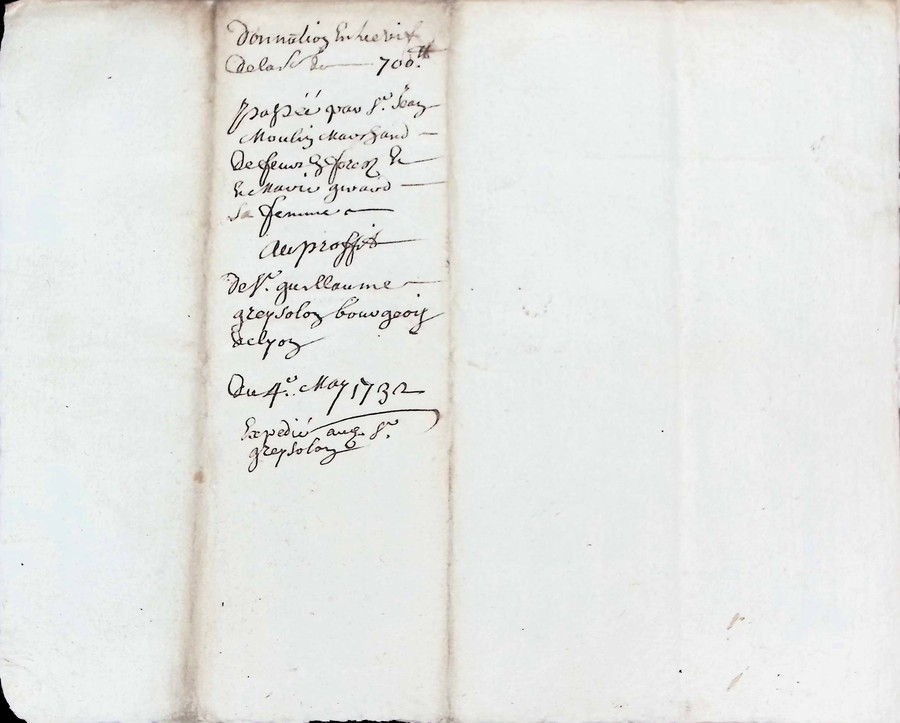 Donnation Entrevif
de la So de 700 ₶
passéé par Sr. Jean
Moulin Marchand
de feurs En forez Et
Et Marie girard
Sa femme
Au proffit
de Sr. guillaume
greysolon bourgeois
de lyon
Du 4e. May 1732
Expedié aud. Sr.
greysolon